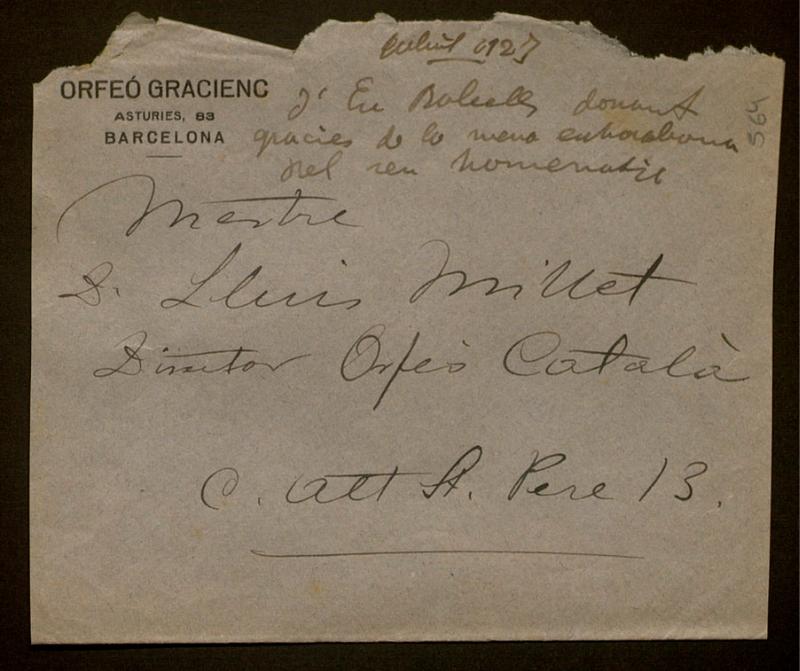 abril 1927
ORFEÓ GRACIENC
ASTURIES, 83
BARCELONA
d' En Balcells donant
gracies de la meva enhorabona
pel seu homenatje
564
Mestre
D. Lluis Millet
Director Orfeó Català
C. Alt St. Pere 13.